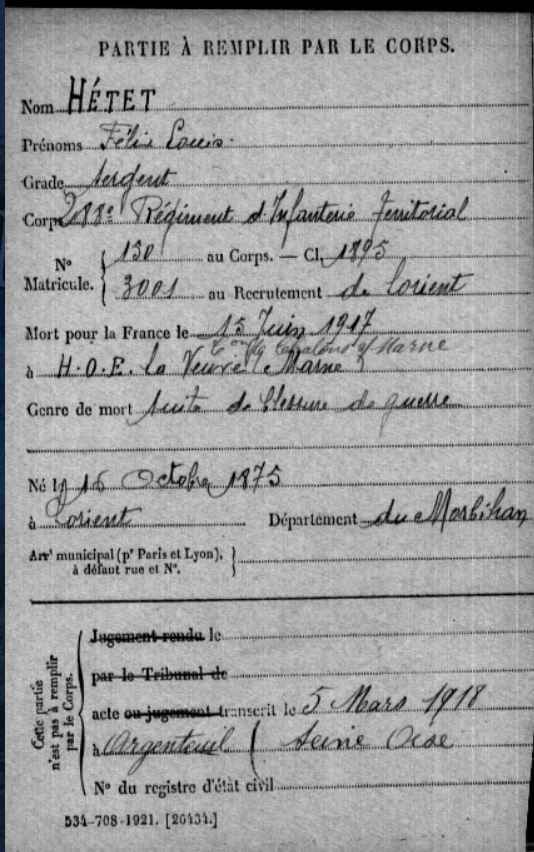 PARTIE À REMPLIR PAR LE CORPS.
Nom HÉTET
Prénoms Félix Louis.
Grade Sergent
Corps 288e Régiment d'Infanterie Territorial
N° Matricule. { 130 au Corps. — Cl. 1895
3001 au Recrutement de Lorient
Mort pour la France le 15 Juin 1917
Chalons s/ Marne
à H.O.E. la Veuve (Marne)
Genre de mort suite de blessure de guerre
Né le 16 Octobre 1875
à Lorient Département du Morbihan
Arrt municipal (pr Paris et Lyon), à défaut rue et N°. }
Cette partie n'est pas à remplir par le Corps.
Jugement rendu le
par le Tribunal de
acte ou jugement transcrit le 5 Mars 1918
à Argenteuil ( Seine Oise
N° du registre d'état civil
534-708-1921. [26434.]